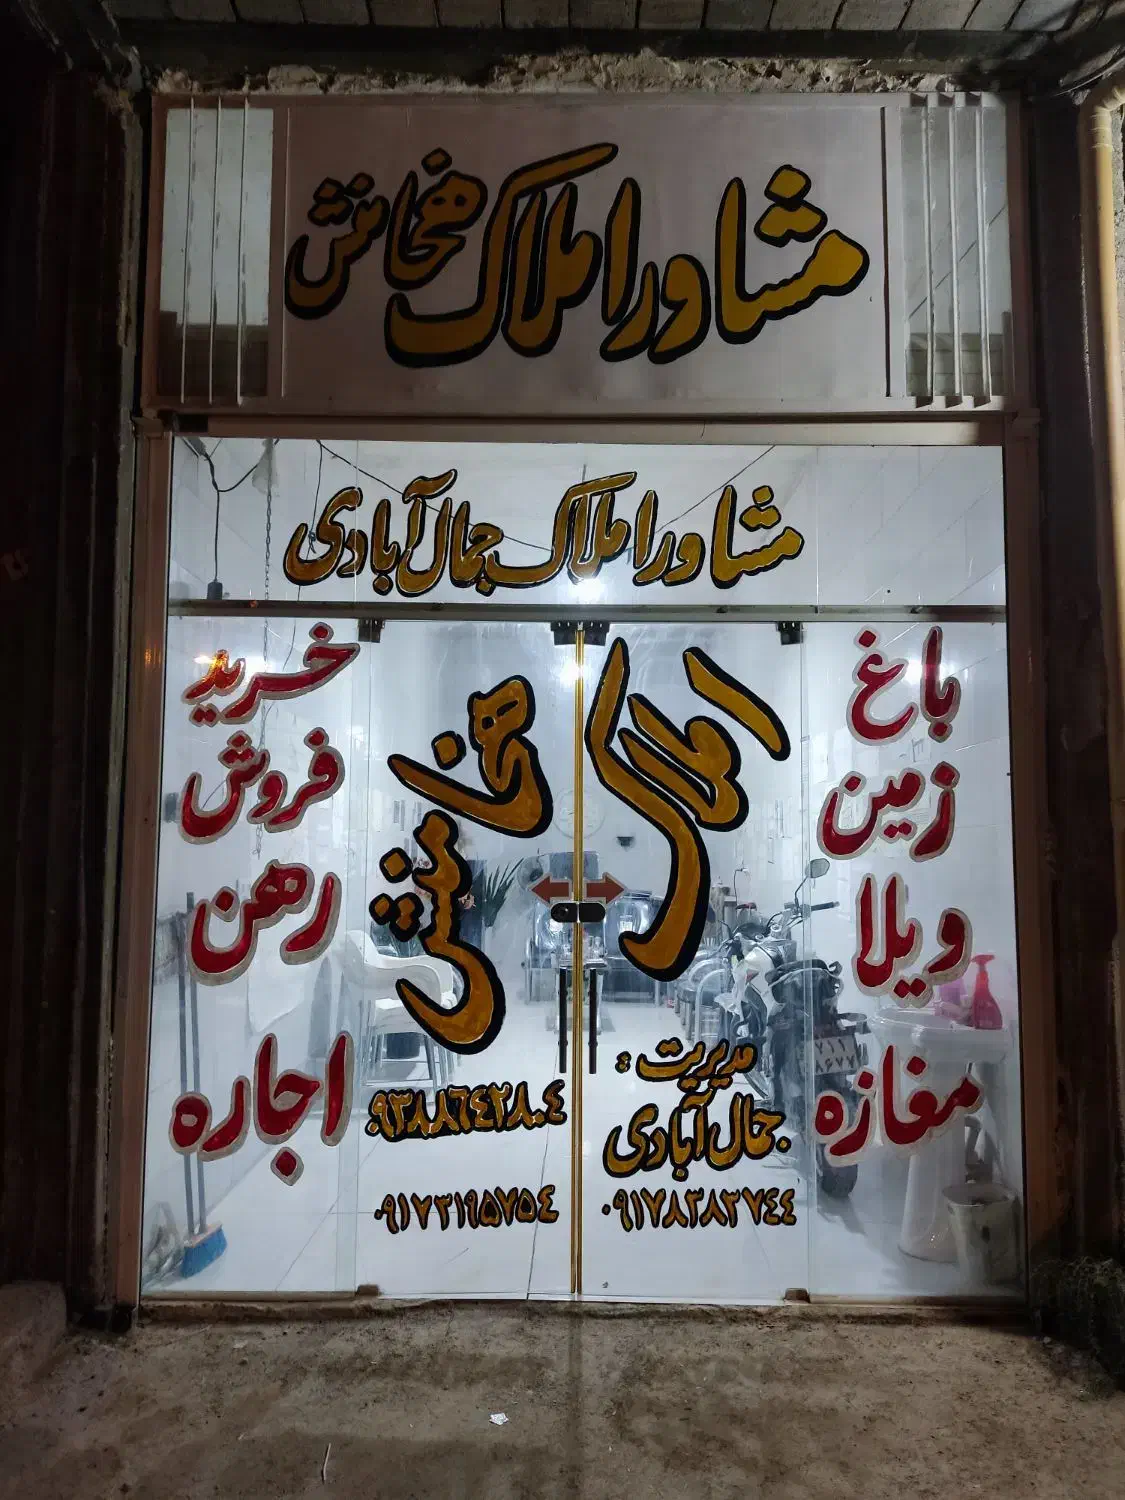 مشاور املاک هخامنش
مشاور املاک جمال آبادی
باغ
زمین
ویلا
مغازه
املاک هخامنش
مدیریت:
جمال آبادی
۰۹۱۷۸۳۸۳۷۴۴
۰۹۳۸۸۶۴۲۸۰۴
۰۹۱۷۳۱۹۵۷۵۴
خرید
فروش
رهن
اجاره